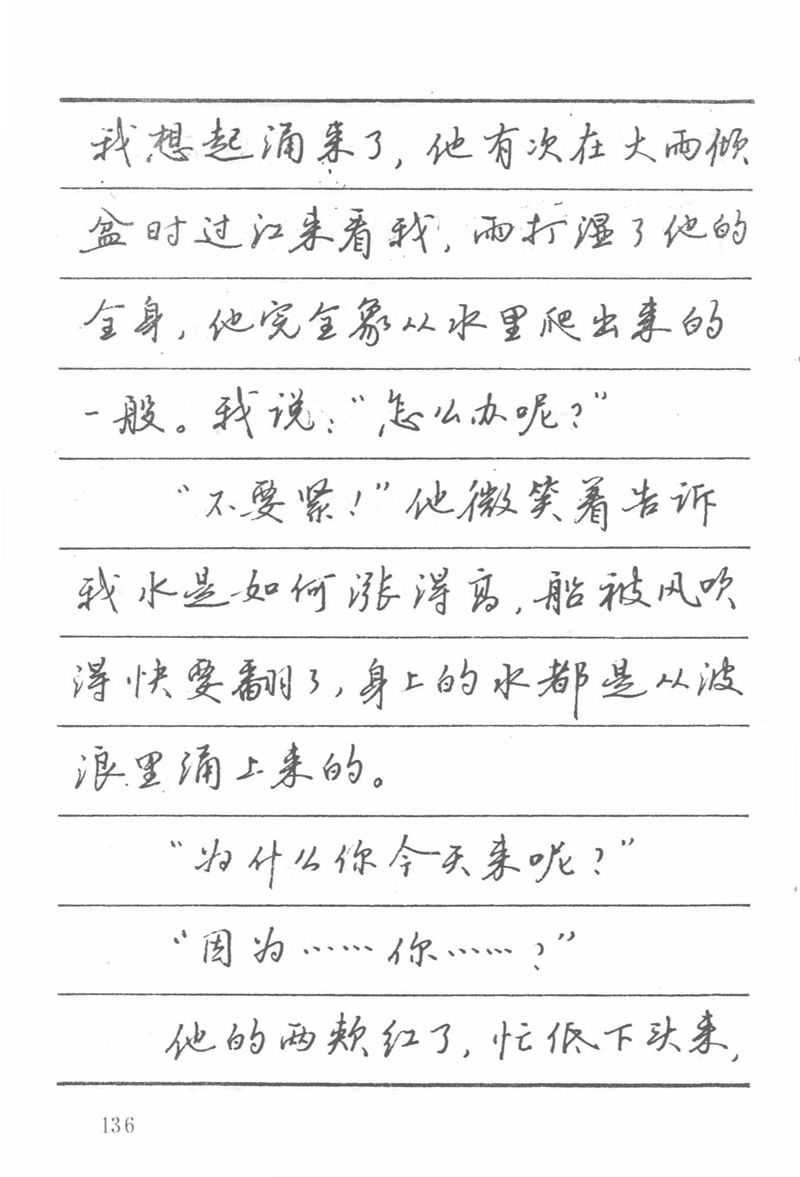 我想起涌来了，他有次在大雨倾
盆时过江来看我，雨打湿了他的
全身，他完全象从水里爬出来的
一般。我说：“怎么办呢？”
“不要紧！”他微笑着告诉
我水是如何涨得高，船被风吹
得快要翻了，身上的水都是从波
浪里涌上来的。
“为什么你今天来呢？”
“因为……你……？”
他的两颊红了，忙低下头来，
136